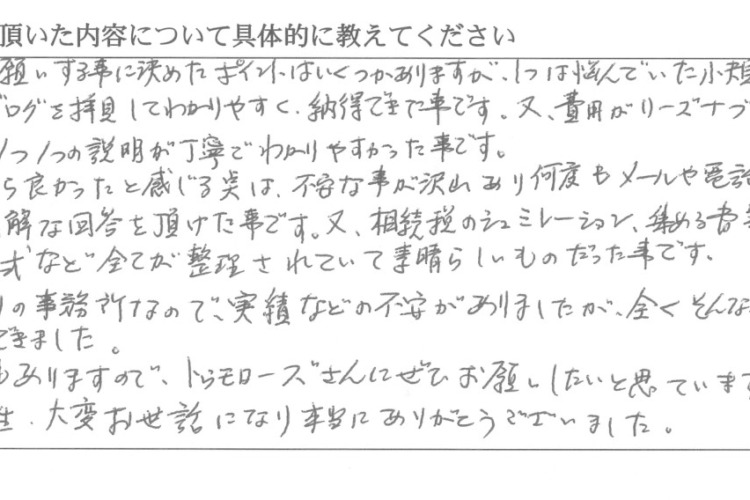 頂いた内容について具体的に教えてください
願いする事に決めたポイントはいくつかありますが、1つは悩んでいた小規
ブログを拝見してわかりやすく、納得できた事です。又、費用がリーズナブ
1つ1つの説明が丁寧でわかりやすかった事です。
ら良かったと感じる点は、不安な事が沢山あり何度もメールや電話
解な回答を頂けた事です。又、相続税のシュミレーション、集める書
式など全てが整理されていて素晴らしいものだった事です。
りの事務所なので、実績などの不安がありましたが、全くそんな
できました。
もありますので、トゥモローズさんにぜひお願いしたいと思っています
生、大変お世話になり本当にありがとうございました。